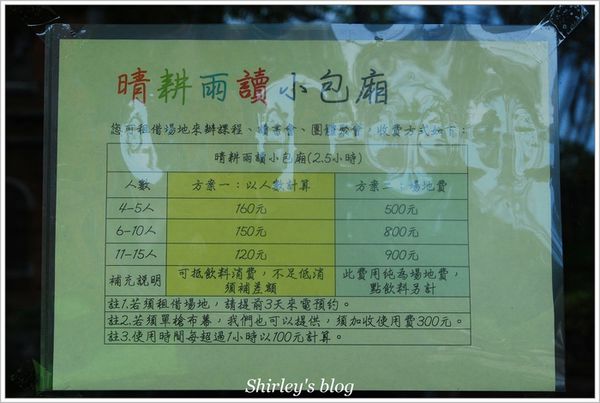 晴耕雨讀小包廂
您可租借場地來辦課程、讀書會、團體聚會，收費方式如下：
晴耕雨讀小包廂(2.5小時)
人數 方案一：以人數計算 方案二：場地費
4-5人 160元 500元
6-10人 150元 800元
11-15人 120元 900元
補充說明 可抵飲料消費，不足低消須補差額 此費用純為場地費，點飲料另計
註1.若須租借場地，請提前3天來電預約。
註2.若須單槍布幕，我們也可以提供，須加收使用費300元。
註3.使用時間每超過1小時以100元計算。
Shirley's blog